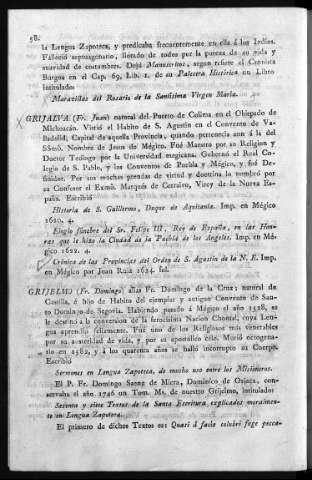 58.
la Lengua Zapoteca, y predicaba frecuentemente en ella á los Indios.
Falleció septuagenario, llorado de todos por la pureza de su vida y
suavidad de costumbres. Dejó Manuscritos, segun refiere el Cronista
Burgoa en el Cap. 69, Lib. 1. de su Palestra Historica un Libro
intitulado
Maravillas del Rosario de la Santisima Virgen Maria.
GRIJALVA (Fr. Juan) natural del Puerto de Colima en el Obispado de
Michoacán. Vistió el Habito de S. Agustin en el Convento de Va-
lladolid, Capital de aquella Provincia, quando pertenecia aun á la del
SSmô. Nombre de Jesus de Mégico. Fué Maestro por su Religion y
Doctor Teologo por la Universidad megicana. Gobernó el Real Co-
legio de S. Pablo, y los Conventos de Puebla y Mégico, y fué De-
finidor. Por sus muchas prendas de virtud y doctrina lo nombró por
su Confesor el Exmô. Marqués de Cerralvo, Virey de la Nueva Es-
paña. Escribió
Historia de S. Guillermo, Duque de Aquitania. Imp. en Mégico
1620. 4.
Elogio fúnebre del Sr. Felipe III, Rey de España, en las Hon-
ras que le hizo la Ciudad de la Puebla de los Angeles. Imp. en Mé-
gico 1622. 4.
Crónica de las Provincias del Orden de S. Agustin de la N. E. Imp.
en Mégico por Juan Ruiz 1624. fol.
GRIJELMO (Fr. Domingo) alias Fr. Domingo de la Cruz; natural de
Castilla, é hijo de Habito del ejemplar y antiguo Convento de San-
to Domingo de Segovia. Habiendo pasado á Mégico el año 1558, se
le destinó á la conversion de la ferocisima Nacion Chontal, cuya Len-
gua aprendió felizmente. Fué uno de los Religiosos mas venerables
por su santidad de vida, y por su apostólico celo. Murió octogena-
rio en 1582, y á los quarenta años se halló incorrupto su Cuerpo.
Escribió
Sermones en Lengua Zapoteca, de mucho uso entre los Misioneros.
El P. Fr. Domingo Saenz de Miera, Dominico de Oajaca, con-
servaba el año 1746 un Tom. Ms. de nuestro Grijelmo, intitulado
Setenta y cinco Textos de la Santa Escritura explicados moralmen-
te en Lengua Zapoteca.
El primero de dichos Textos era Quasi á facie colubri fuge pecca-